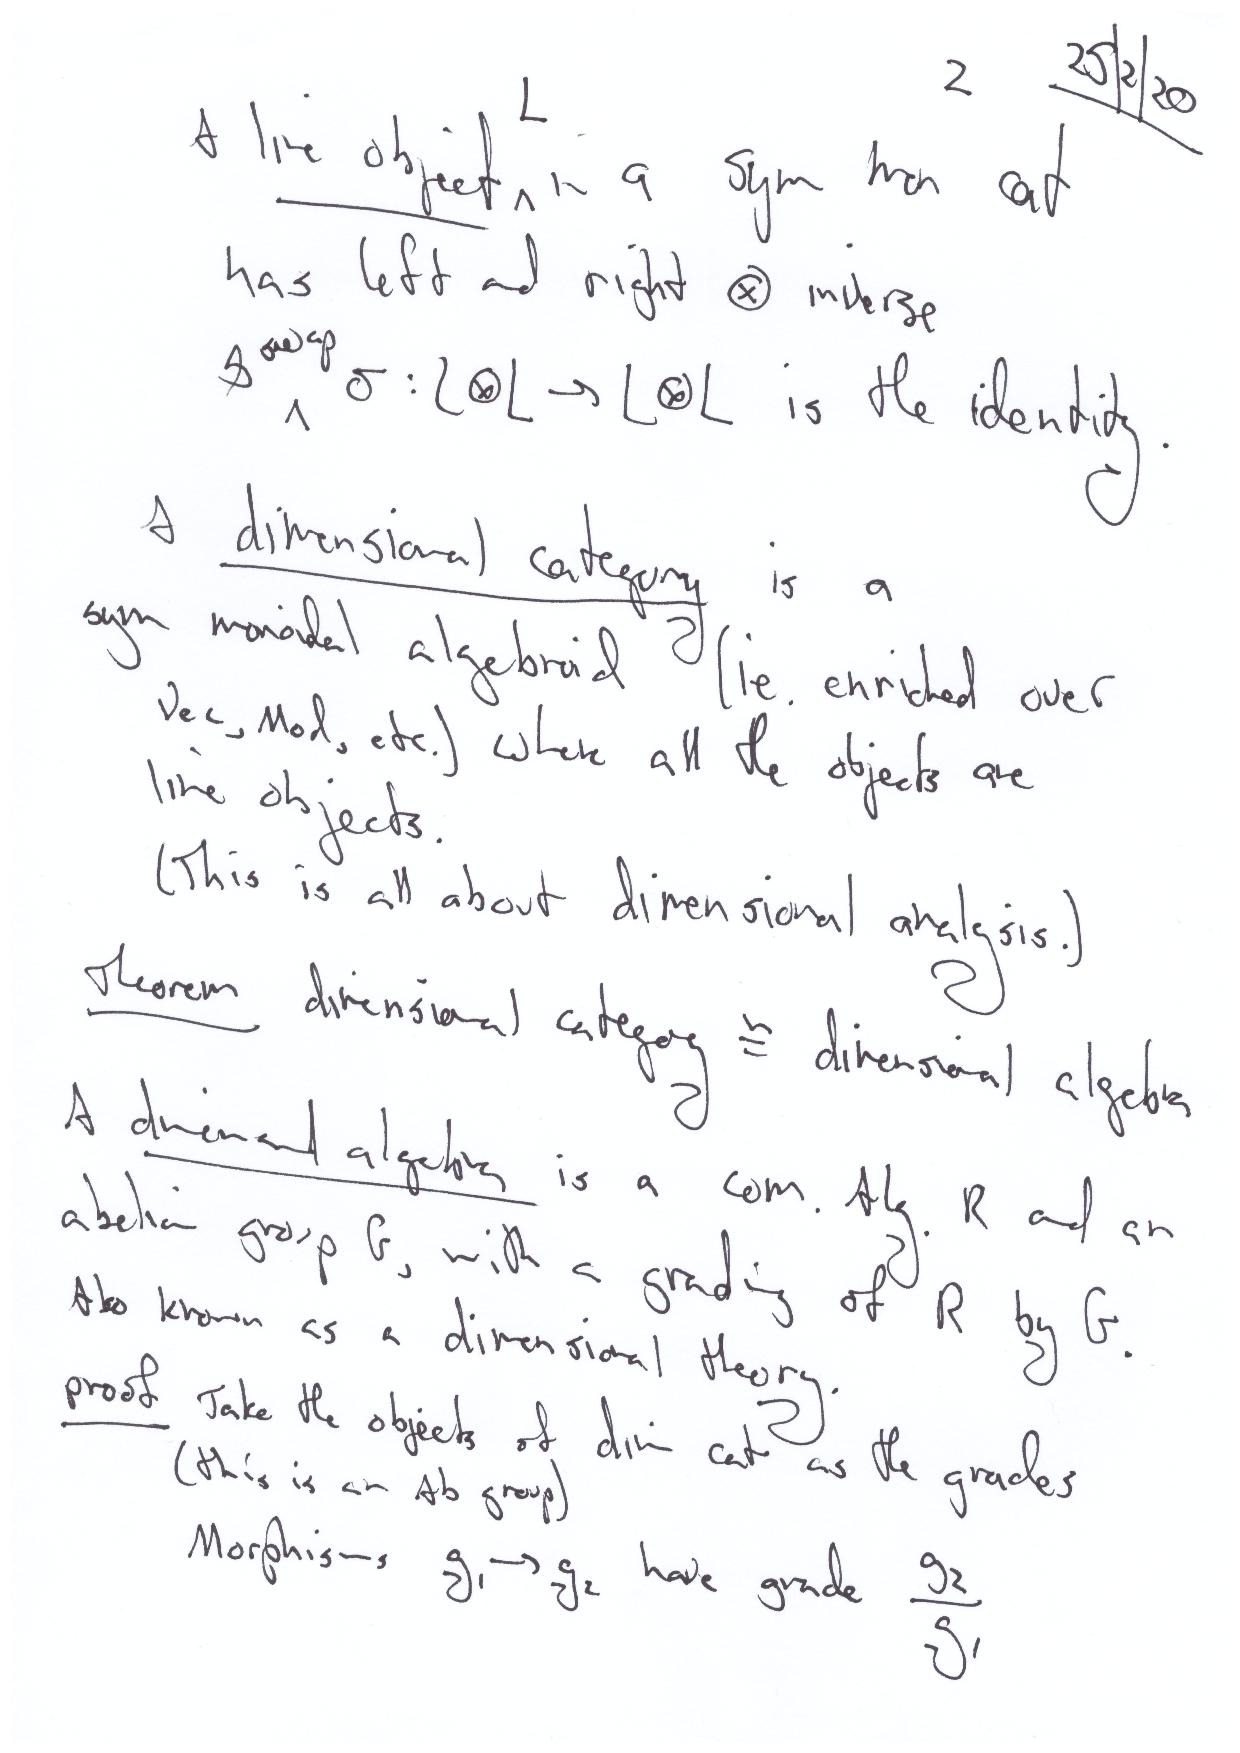 2 25/2/20
A line object L in a sym mon cat
has left and right ⊗ inverse
& swap σ : L⊗L → L⊗L is the identity.
A dimensional category is a
sym monoidal algebroid (ie. enriched over
Vec, Mod, etc.) where all the objects are
line objects.
(This is all about dimensional analysis.)
theorem dimensional category ≅ dimensional algebra
A dimensional algebra is a com. Alg. R and an
abelian group G, with a grading of R by G.
Also known as a dimensional theory.
proof Take the objects of dim cat as the grades
(this is an Ab group)
Morphisms g₁ → g₂ have grade g₂/g₁